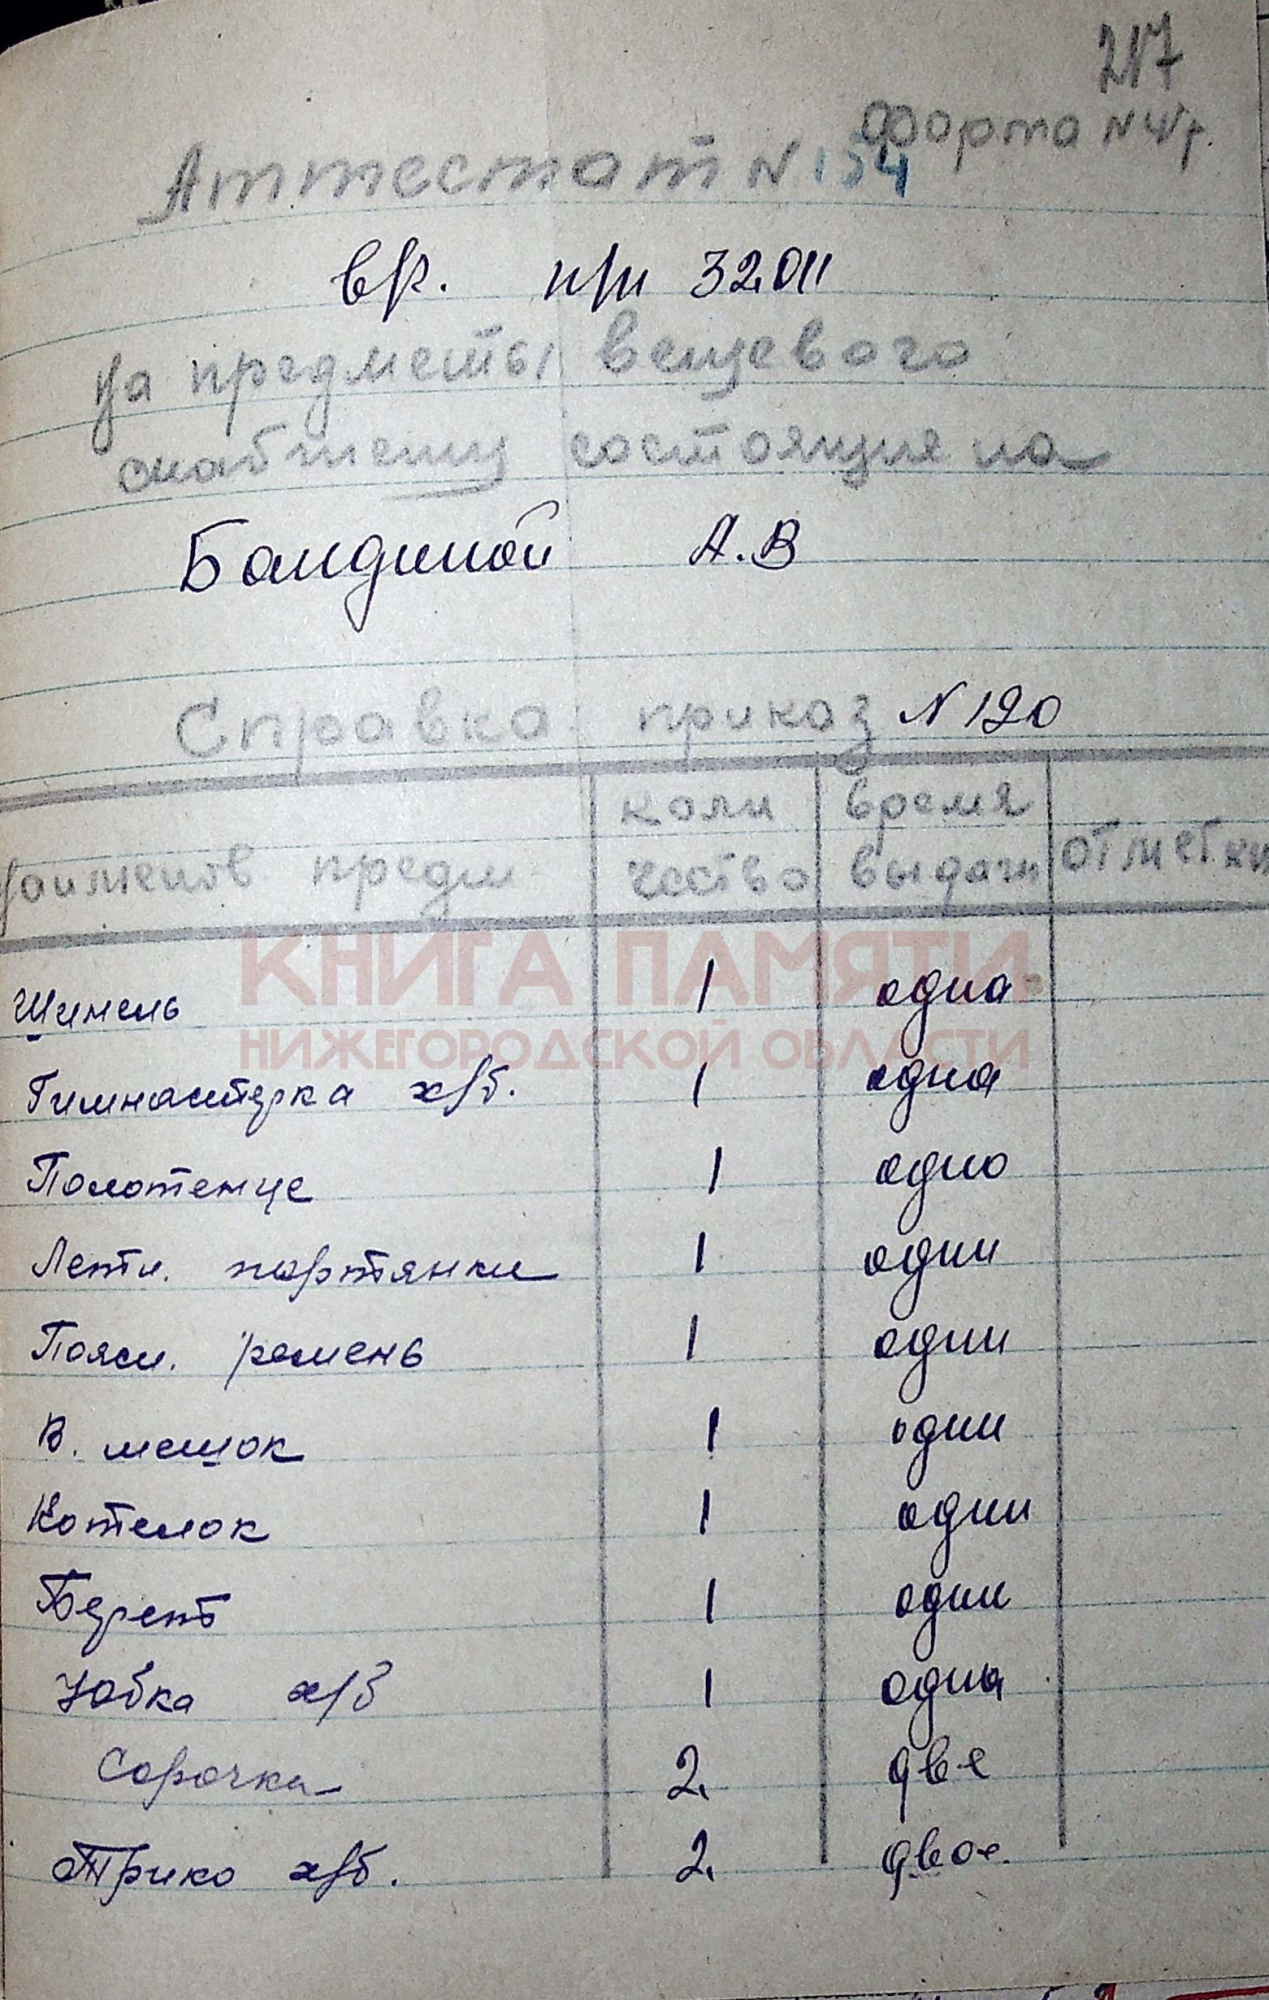 217
форма N 4/р.
Аттестат N 134
вр. при 32011
на предметы вещевого
снабжени состоящия на
Бандиной А.В
Справка приказ N 120
наименов предм количество время выдачи отметки
КНИГА ПАМЯТИ
НИЖЕГОРОДСКОЙ ОБЛАСТИ
Шинель 1 одна
Гимнастерка х/б. 1 одна
Полотенце 1 одно
Летн. портянки 1 одни
Поясн. ремень 1 один
В. мешок 1 один
Котелок 1 один
Берет 1 один
Юбка х/б 1 одна
Сорочка 2 две
Трико х/б. 2 двое.